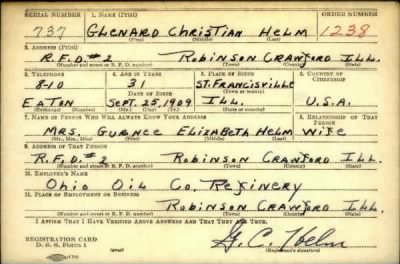 SERIAL NUMBER 1. NAME (Print) ORDER NUMBER
737 GLENARD CHRISTIAN HELM 1238
(First) (Middle) (Last)
2. ADDRESS (Print)
R.F.D.#2 ROBINSON CRAWFORD ILL.
(Number and street or R. F. D. number) (Town) (County) (State)
3. TELEPHONE 4. AGE IN YEARS 5. PLACE OF BIRTH 6. COUNTRY OF CITIZENSHIP
8-10 31 ST. FRANCISVILLE
DATE OF BIRTH (Town or county)
EATON SEPT. 25, 1909 ILL. U.S.A.
(Exchange) (Number) (Mo.) (Day) (Yr.) (State or country)
7. NAME OF PERSON WHO WILL ALWAYS KNOW YOUR ADDRESS 8. RELATIONSHIP OF THAT PERSON
MRS. GURNEE ELIZABETH HELM WIFE
(Mr., Mrs., Miss) (First) (Middle) (Last)
9. ADDRESS OF THAT PERSON
R.F.D.#2 ROBINSON CRAWFORD ILL.
(Number and street or R. F. D. number) (Town) (County) (State)
10. EMPLOYER'S NAME
OHIO OIL CO. REFINERY
11. PLACE OF EMPLOYMENT OR BUSINESS
ROBINSON CRAWFORD ILL.
(Number and street or R. F. D. number) (Town) (County) (State)
I AFFIRM THAT I HAVE VERIFIED ABOVE ANSWERS AND THAT THEY ARE TRUE.
REGISTRATION CARD
D. S. S. Form 1 G. C. Helm
(Registrant's signature)